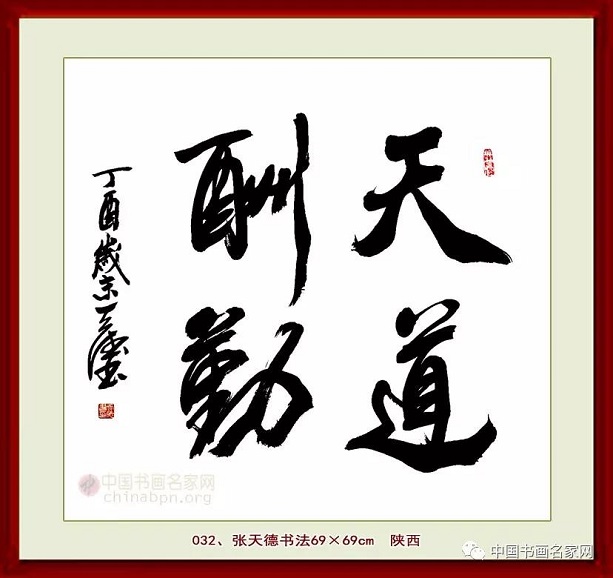 天道
酬勤
丁酉歲末天德書
中国书画名家网
chinabpn.org
032、张天德书法69×69cm 陕西
中国书画名家网